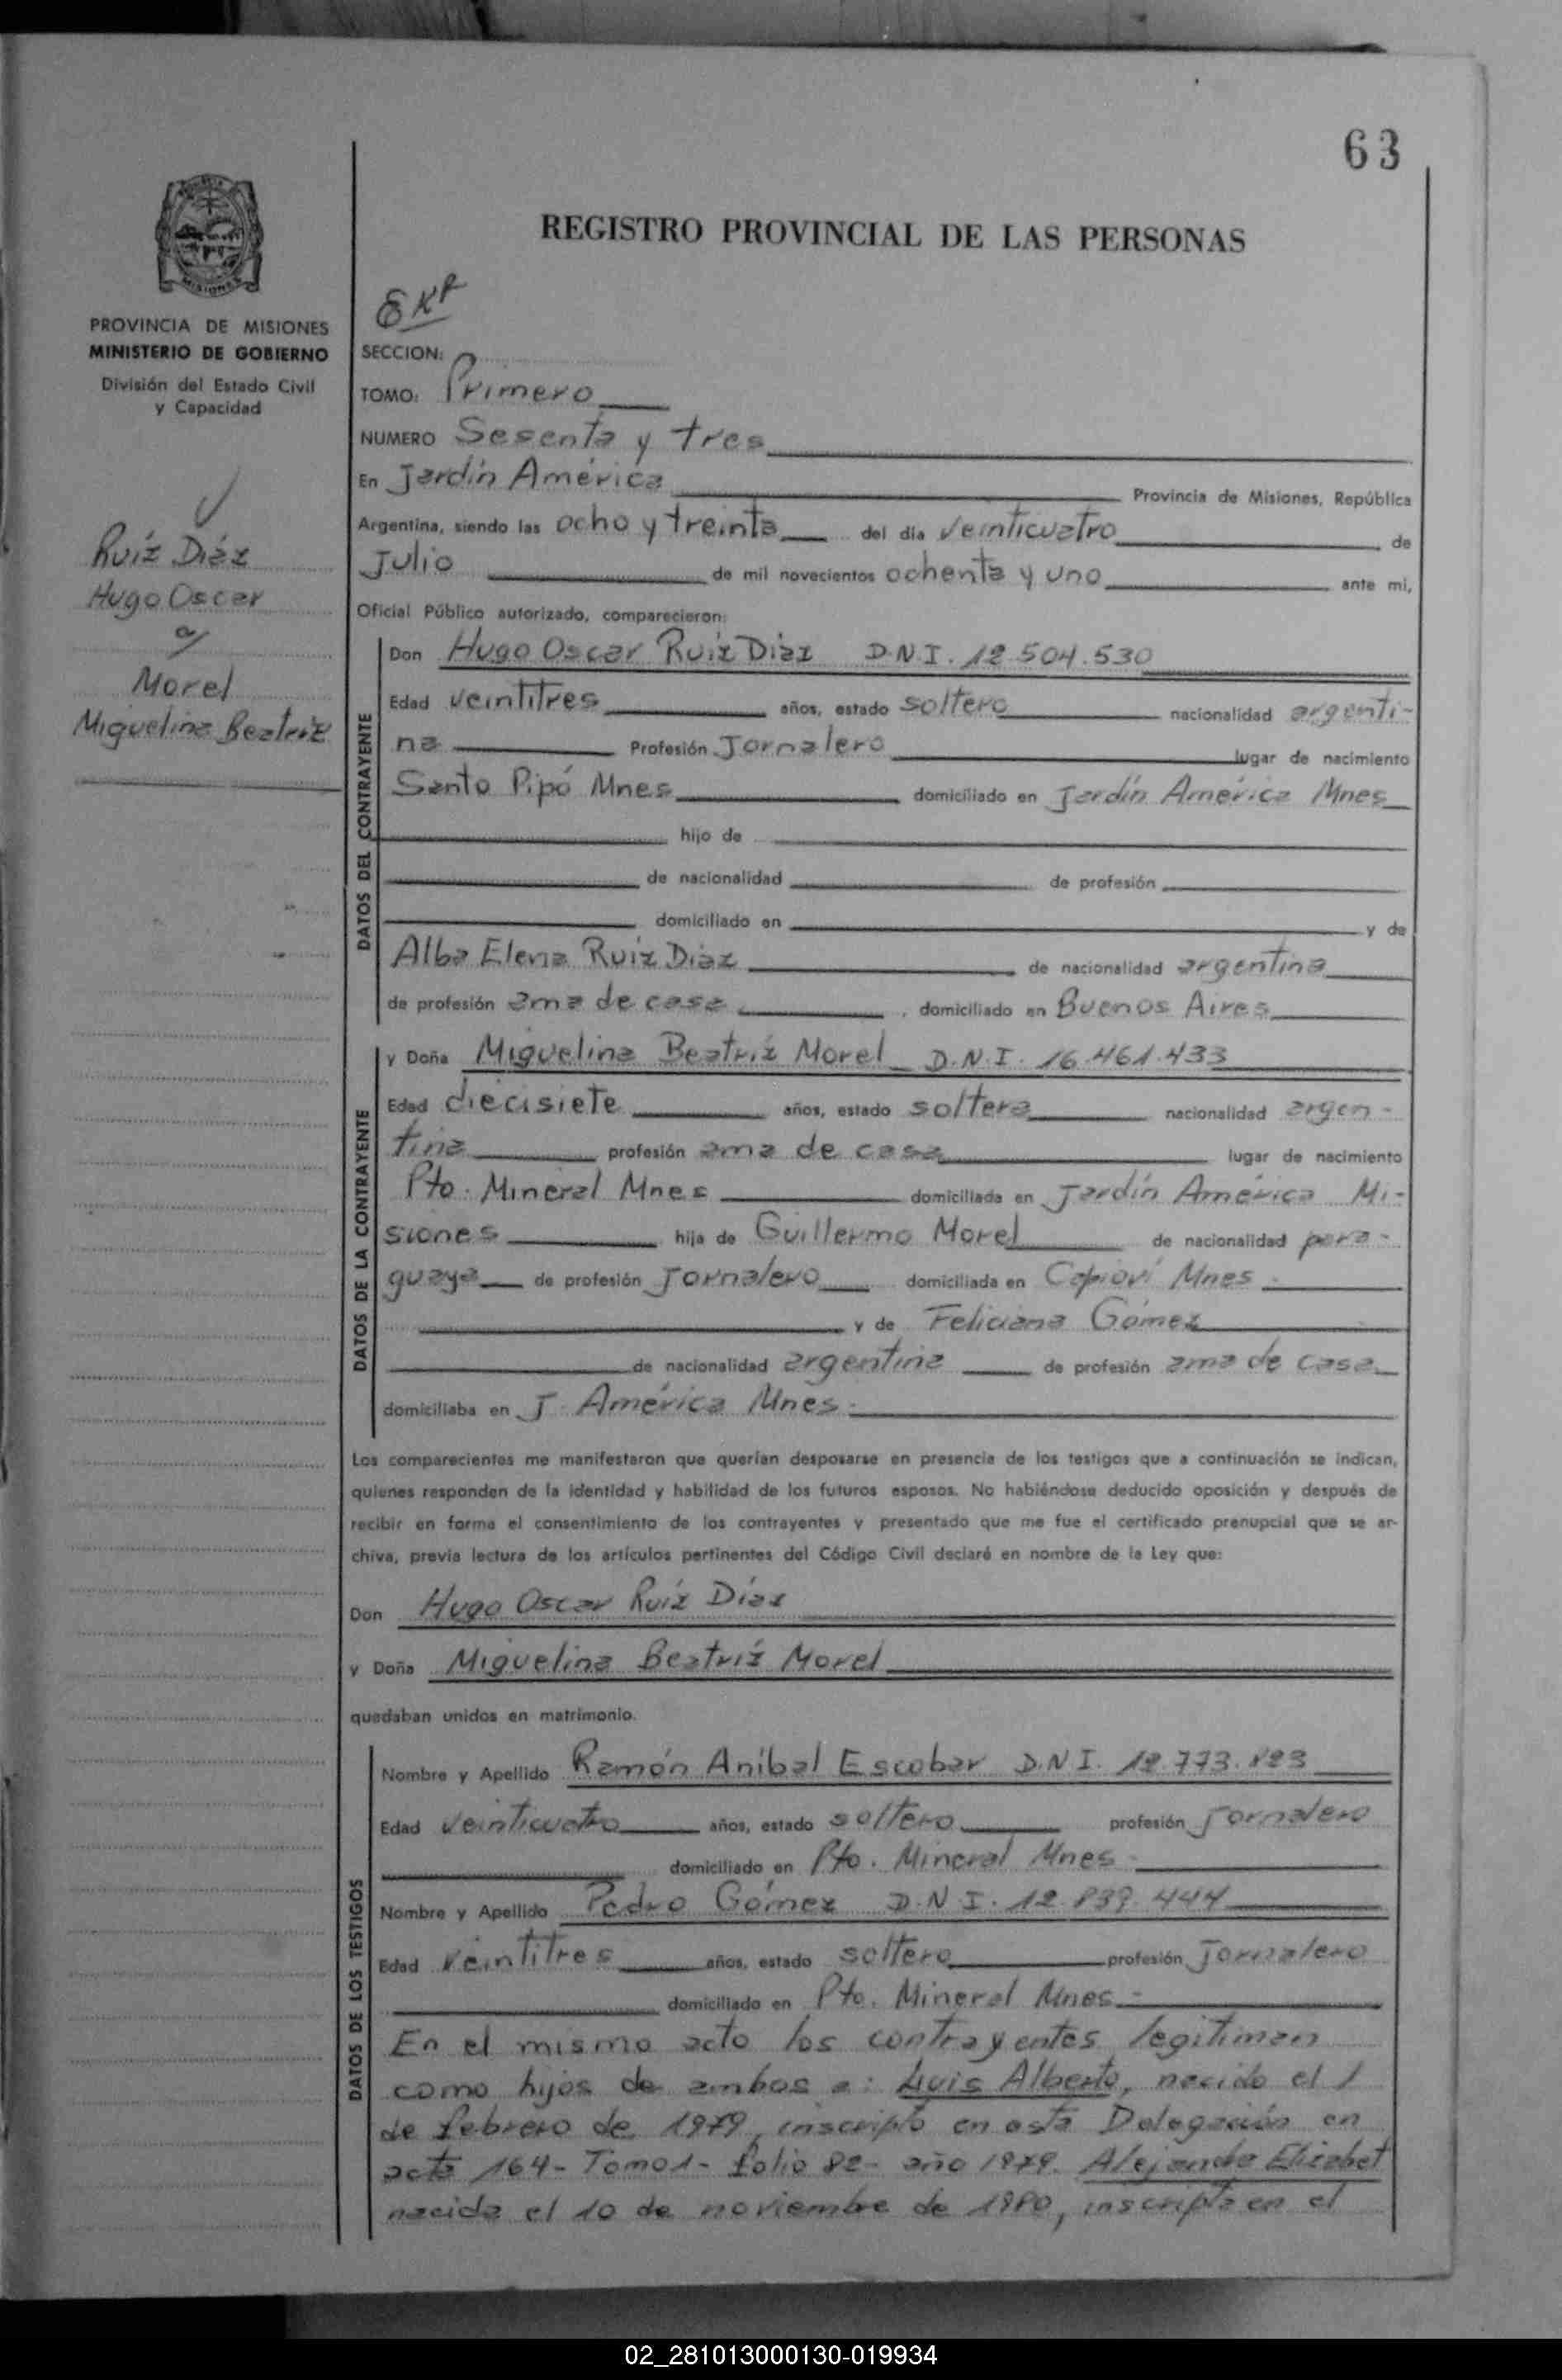 63
REGISTRO PROVINCIAL DE LAS PERSONAS
MISIONES
PROVINCIA DE MISIONES
MINISTERIO DE GOBIERNO
División del Estado Civil
y Capacidad
Ruíz Diáz
Hugo Oscar
Morel
Miguelina Beatriz
SECCION:
TOMO: Primero
NUMERO Sesenta y tres
En Jardín América Provincia de Misiones, República
Argentina, siendo las ocho y treinta del día veinticuatro de
Julio de mil novecientos ochenta y uno ante mi,
Oficial Público autorizado, comparecieron:
DATOS DEL CONTRAYENTE
Don Hugo Oscar Ruíz Díaz D.N.I. 12.504.530
Edad veintitres años, estado soltero nacionalidad argenti-
na Profesión Jornalero lugar de nacimiento
Santo Pipó Mnes domiciliado en Jardín América Mnes
hijo de
de nacionalidad de profesión
domiciliado en y de
Alba Elena Ruíz Diaz de nacionalidad argentina
de profesión ama de casa, domiciliado en Buenos Aires
DATOS DE LA CONTRAYENTE
y Doña Miguelina Beatríz Morel D.N.I. 16.461.433
Edad diecisiete años, estado soltera nacionalidad argen-
tina profesión ama de casa lugar de nacimiento
Pto. Mineral Mnes domiciliada en Jardín América Mi-
siones hija de Guillermo Morel de nacionalidad para-
guaya de profesión Jornalero domiciliada en Capioví Mnes.
y de Feliciana Gómez
de nacionalidad argentina de profesión ama de casa
domiciliaba en J. América Mnes.
Los comparecientes me manifestaron que querían desposarse en presencia de los testigos que a continuación se indican,
quienes responden de la identidad y habilidad de los futuros esposos. No habiéndose deducido oposición y después de
recibir en forma el consentimiento de los contrayentes y presentado que me fue el certificado prenupcial que se ar-
chiva, previa lectura de los artículos pertinentes del Código Civil declaré en nombre de la Ley que:
Don Hugo Oscar Ruíz Díaz
y Doña Miguelina Beatríz Morel
quedaban unidos en matrimonio.
DATOS DE LOS TESTIGOS
Nombre y Apellido Ramón Aníbal Escobar D.N.I. 12.773.823
Edad veinticuatro años, estado soltero profesión Jornalero
domiciliado en Pto. Mineral Mnes.
Nombre y Apellido Pedro Gómez D.N.I. 12.839.444
Edad veintitres años, estado soltero profesión Jornalero
domiciliado en Pto. Mineral Mnes.-
En el mismo acto los contrayentes legitiman
como hijos de ambos a: Luis Alberto, nacido el 1
de febrero de 1979, inscripto en esta Delegación en
acta 164- Tomo 1- folio 82- año 1979. Alejandra Elizabet
nacida el 10 de noviembre de 1980, inscripta en el
02_281013000130-019934